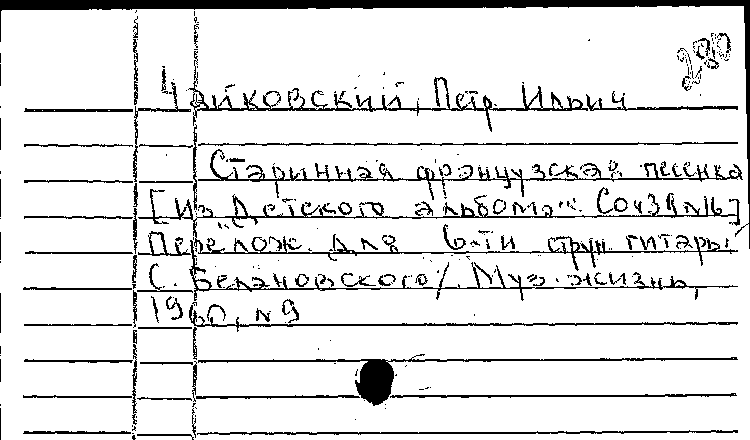 280
Чайковский, Петр Ильич
Старинная французская песенка
[Из "Детского альбома". Соч 39 № 16]
Перелож. для 6-ти струн. гитары
С. Белановского/. Муз. жизнь,
1960, № 9